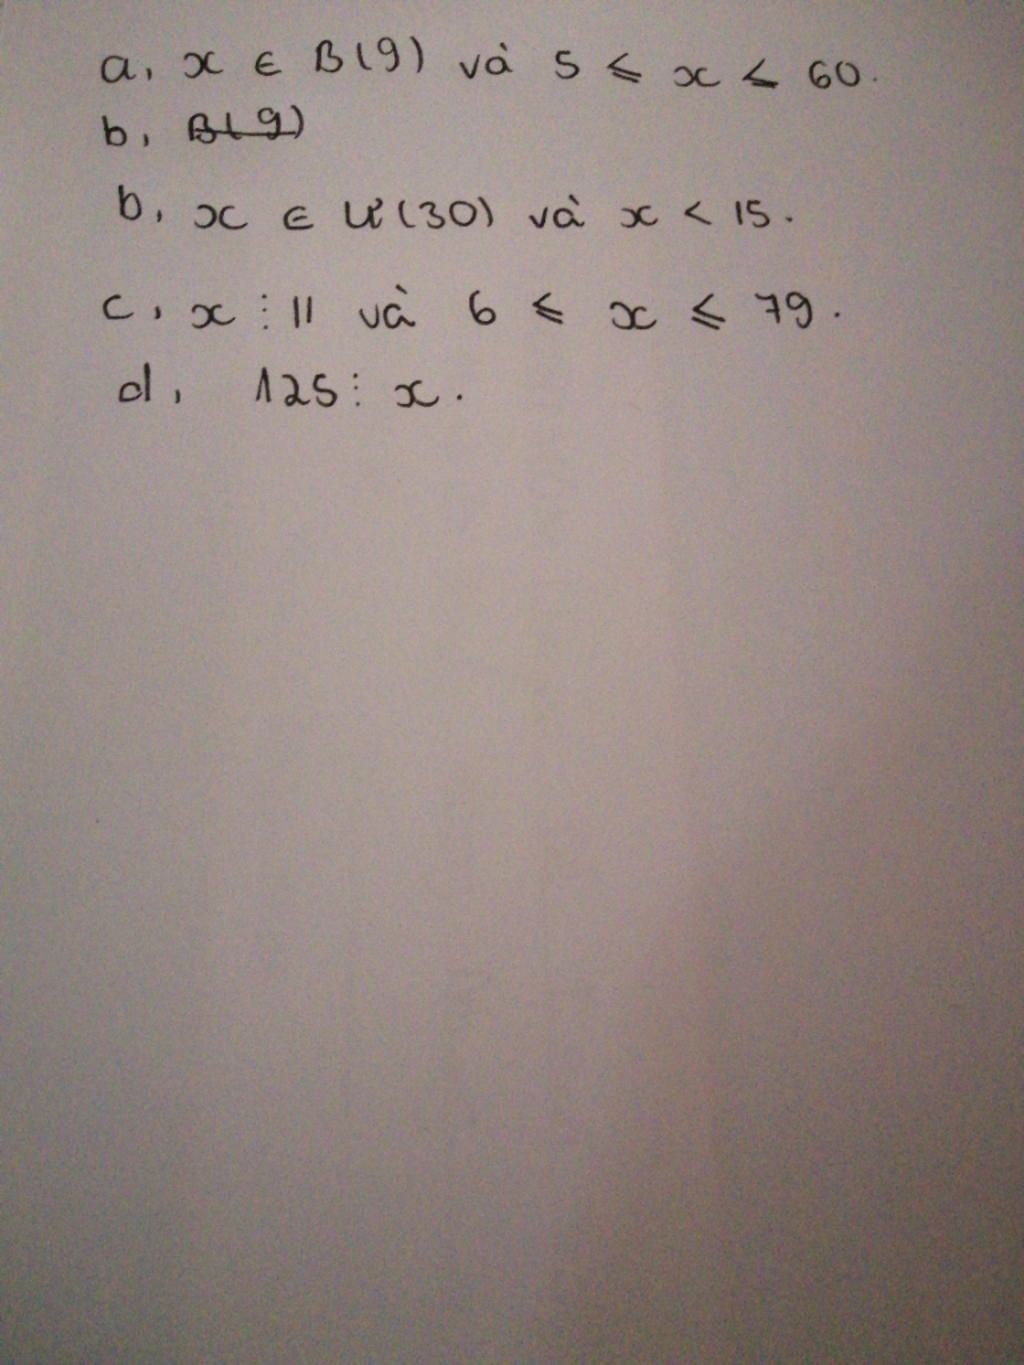 a, x ∈ B(9) và 5 ⩽ x ⩽ 60.
b, B(9)
b, x ∈ Ư(30) và x < 15.
c, x ⋮ 11 và 6 ⩽ x ⩽ 79.
d, 125 ⋮ x.